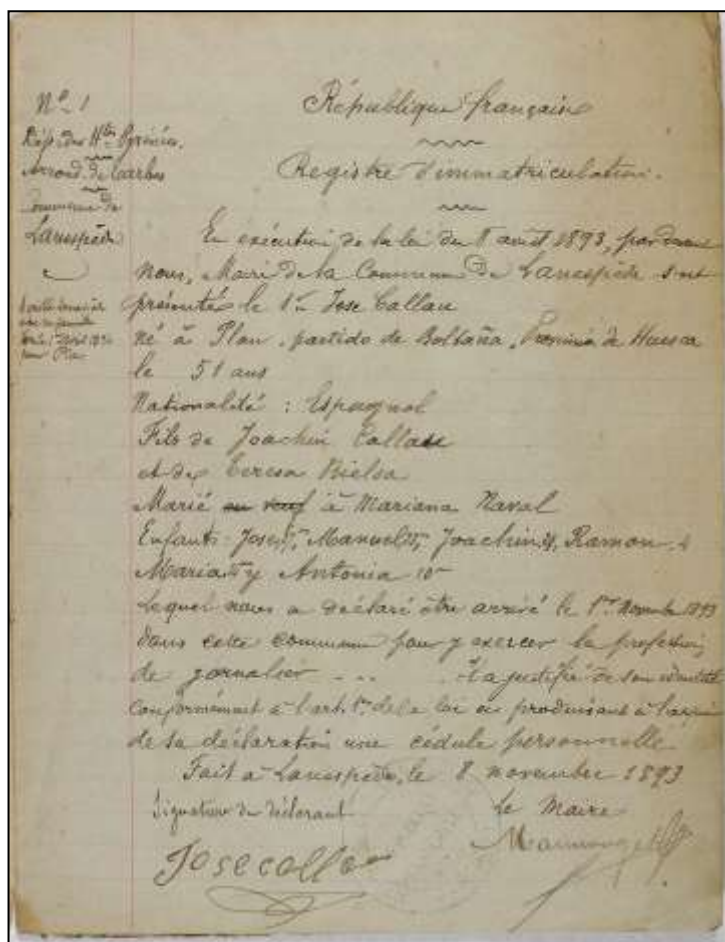 Nº 1
Dép. des Htes Pyrénées.
Arrond. de Tarbes
Commune de
Lanespède
République française
Registre d'immatriculation.
En exécution de la loi du 8 août 1893, par devant
nous, Maire de la Commune de Lanespède s'est
présenté le Sr Jose Callau
né à Plan, partido de Boltaña, Provincia de Huesca
le 51 ans
Nationalité : Espagnol
Fils de Joachin Callau
et de Teresa Bielsa
Marié ou veuf à Mariana Naval
Enfants Jose, Manuel, Joachin, Ramon
Maria y Antonia
Lequel nous a déclaré être arrivé le 1er Novembre 1893
dans cette commune pour y exercer la profession
de jornalier . . . Il a justifié de son identité
conformément à l'art. 1er de la loi en produisant à l'appui
de sa déclaration une cédule personnelle
Fait à Lanespède, le 8 novembre 1893
Signature du déclarant
Le Maire
Jose Callau